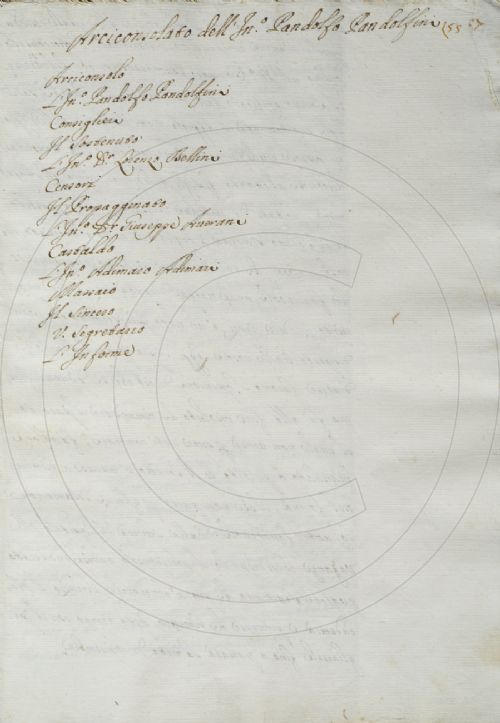 Arciconsolato dell'In.º Pandolfo Pandolfini 155
Arciconsolo
L'In.º Pandolfo Pandolfini
Consiglieri
Il Sostenuto
L'In.º D.r Lorenzo Bellini
Censori
Il Propagginato
L'In.º D.r Giuseppe Averani
Castaldo
L'In.º Adimaro Adimari
Massaio
Il Sincero
V. Segretario
L'Informe